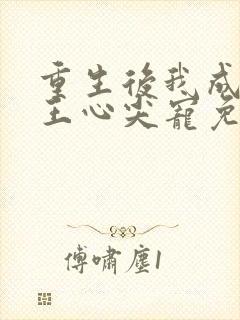 重生後我成
王心尖寵免
傅嘯塵1